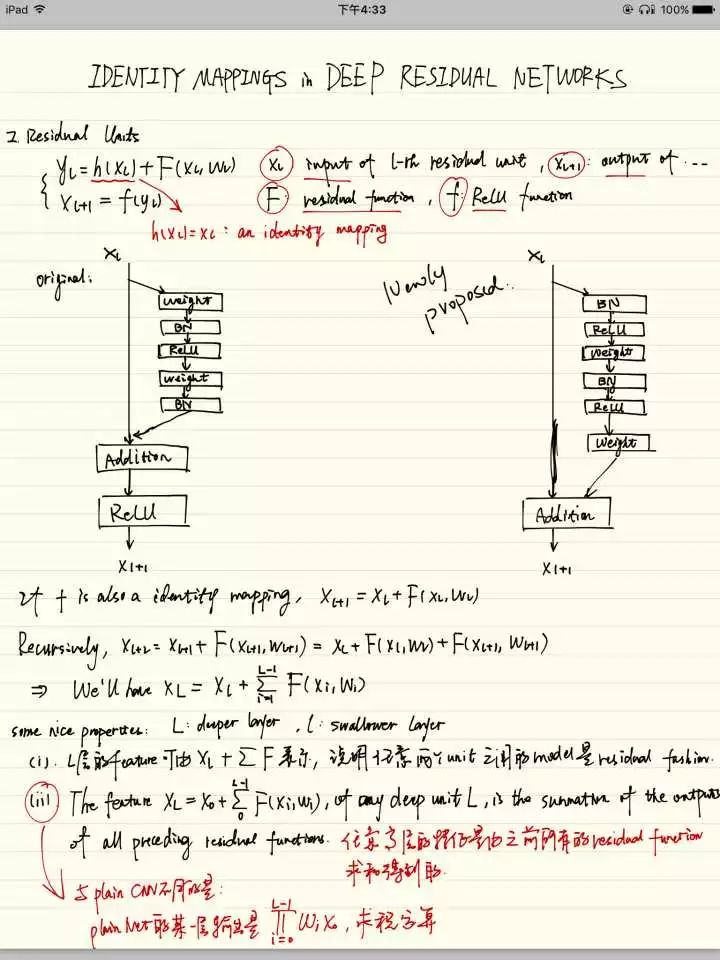 iPad 下午4:33 100%
IDENTITY MAPPINGS in DEEP RESIDUAL NETWORKS
I. Residual Units
{ y_l = h(x_l) + F(x_l, w_l) x_l input of l-th residual unit, x_{l+1}: output of ...
x_{l+1} = f(y_l) F: residual function, f: ReLU function
h(x_l)=x_l: an identity mapping
original:
x_l
weight
BN
ReLU
weight
BN
Addition
ReLU
x_{l+1}
Newly proposed..
x_l
BN
ReLU
weight
BN
ReLU
weight
Addition
x_{l+1}
If f is also a identity mapping, x_{l+1} = x_l + F(x_l, w_l)
Recursively, x_{l+2} = x_{l+1} + F(x_{l+1}, w_{l+1}) = x_l + F(x_l, w_l) + F(x_{l+1}, w_{l+1})
⇒ We'll have x_L = x_l + ∑_{i=l}^{L-1} F(x_i, w_i)
some nice properties: L: deeper layer, l: swallower layer
(i). L层的feature可由 x_l + ∑ F 表示, 说明任意两个unit之间的model是residual fashion.
(ii) The feature x_L = x_0 + ∑_{0}^{L-1} F(x_i, w_i), of any deep unit L, is the summation of the outputs
of all preceding residual functions. 任意高层的特征是由之前所有的residual function
求和得到的.
与plain CNN不同的是:
plain Net的某一层输出是 ∏_{i=0}^{L-1} w_i x_0, 求积运算